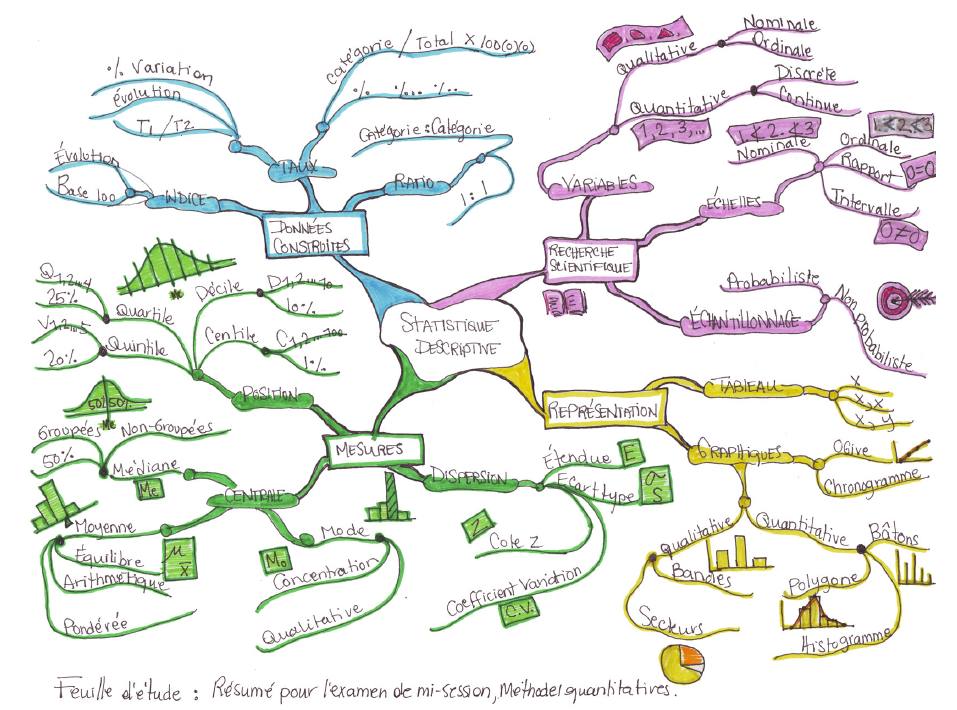 STATISTIQUE
DESCRIPTIVE
DONNÉES
CONSTRUITES
TAUX
% Variation
évolution
T1/T2
catégorie / Total X 100(0)(0)
Catégorie : Catégorie
RATIO
1 : 1
INDICE
Évolution
Base 100
RECHERCHE
SCIENTIFIQUE
VARIABLES
Qualitative
Nominale
Ordinale
Quantitative
Discrète
Continue
1, 2, 3, ...
ÉCHELLES
Nominale
Ordinale
Rapport
0=0
Intervalle
0≠0
ÉCHANTILLONNAGE
Probabiliste
Non
Probabiliste
REPRÉSENTATION
TABLEAU
X
X, X
X, Y
GRAPHIQUES
Ogive
Chronogramme
Qualitative
Bandes
Secteurs
Quantitative
Bâtons
Polygone
Histogramme
MESURES
POSITION
Quartile
Q1,2...4
25%
Quintile
V1,2...5
20%
Décile
D1,2...10
10%
Centile
C1,2...100
1%
Me
50% 50%
Me
CENTRALE
Médiane
Groupées
Non-Groupées
50%
Me
Moyenne
Équilibre
Arithmétique
Pondérée
μ
x̄
Mode
Mo
Concentration
Qualitative
DISPERSION
Étendue
E
Écart type
σ
S
Cote Z
Z
Coefficient Variation
C.V.
Feuille d'étude : Résumé pour l'examen de mi-session, Méthodes quantitatives.